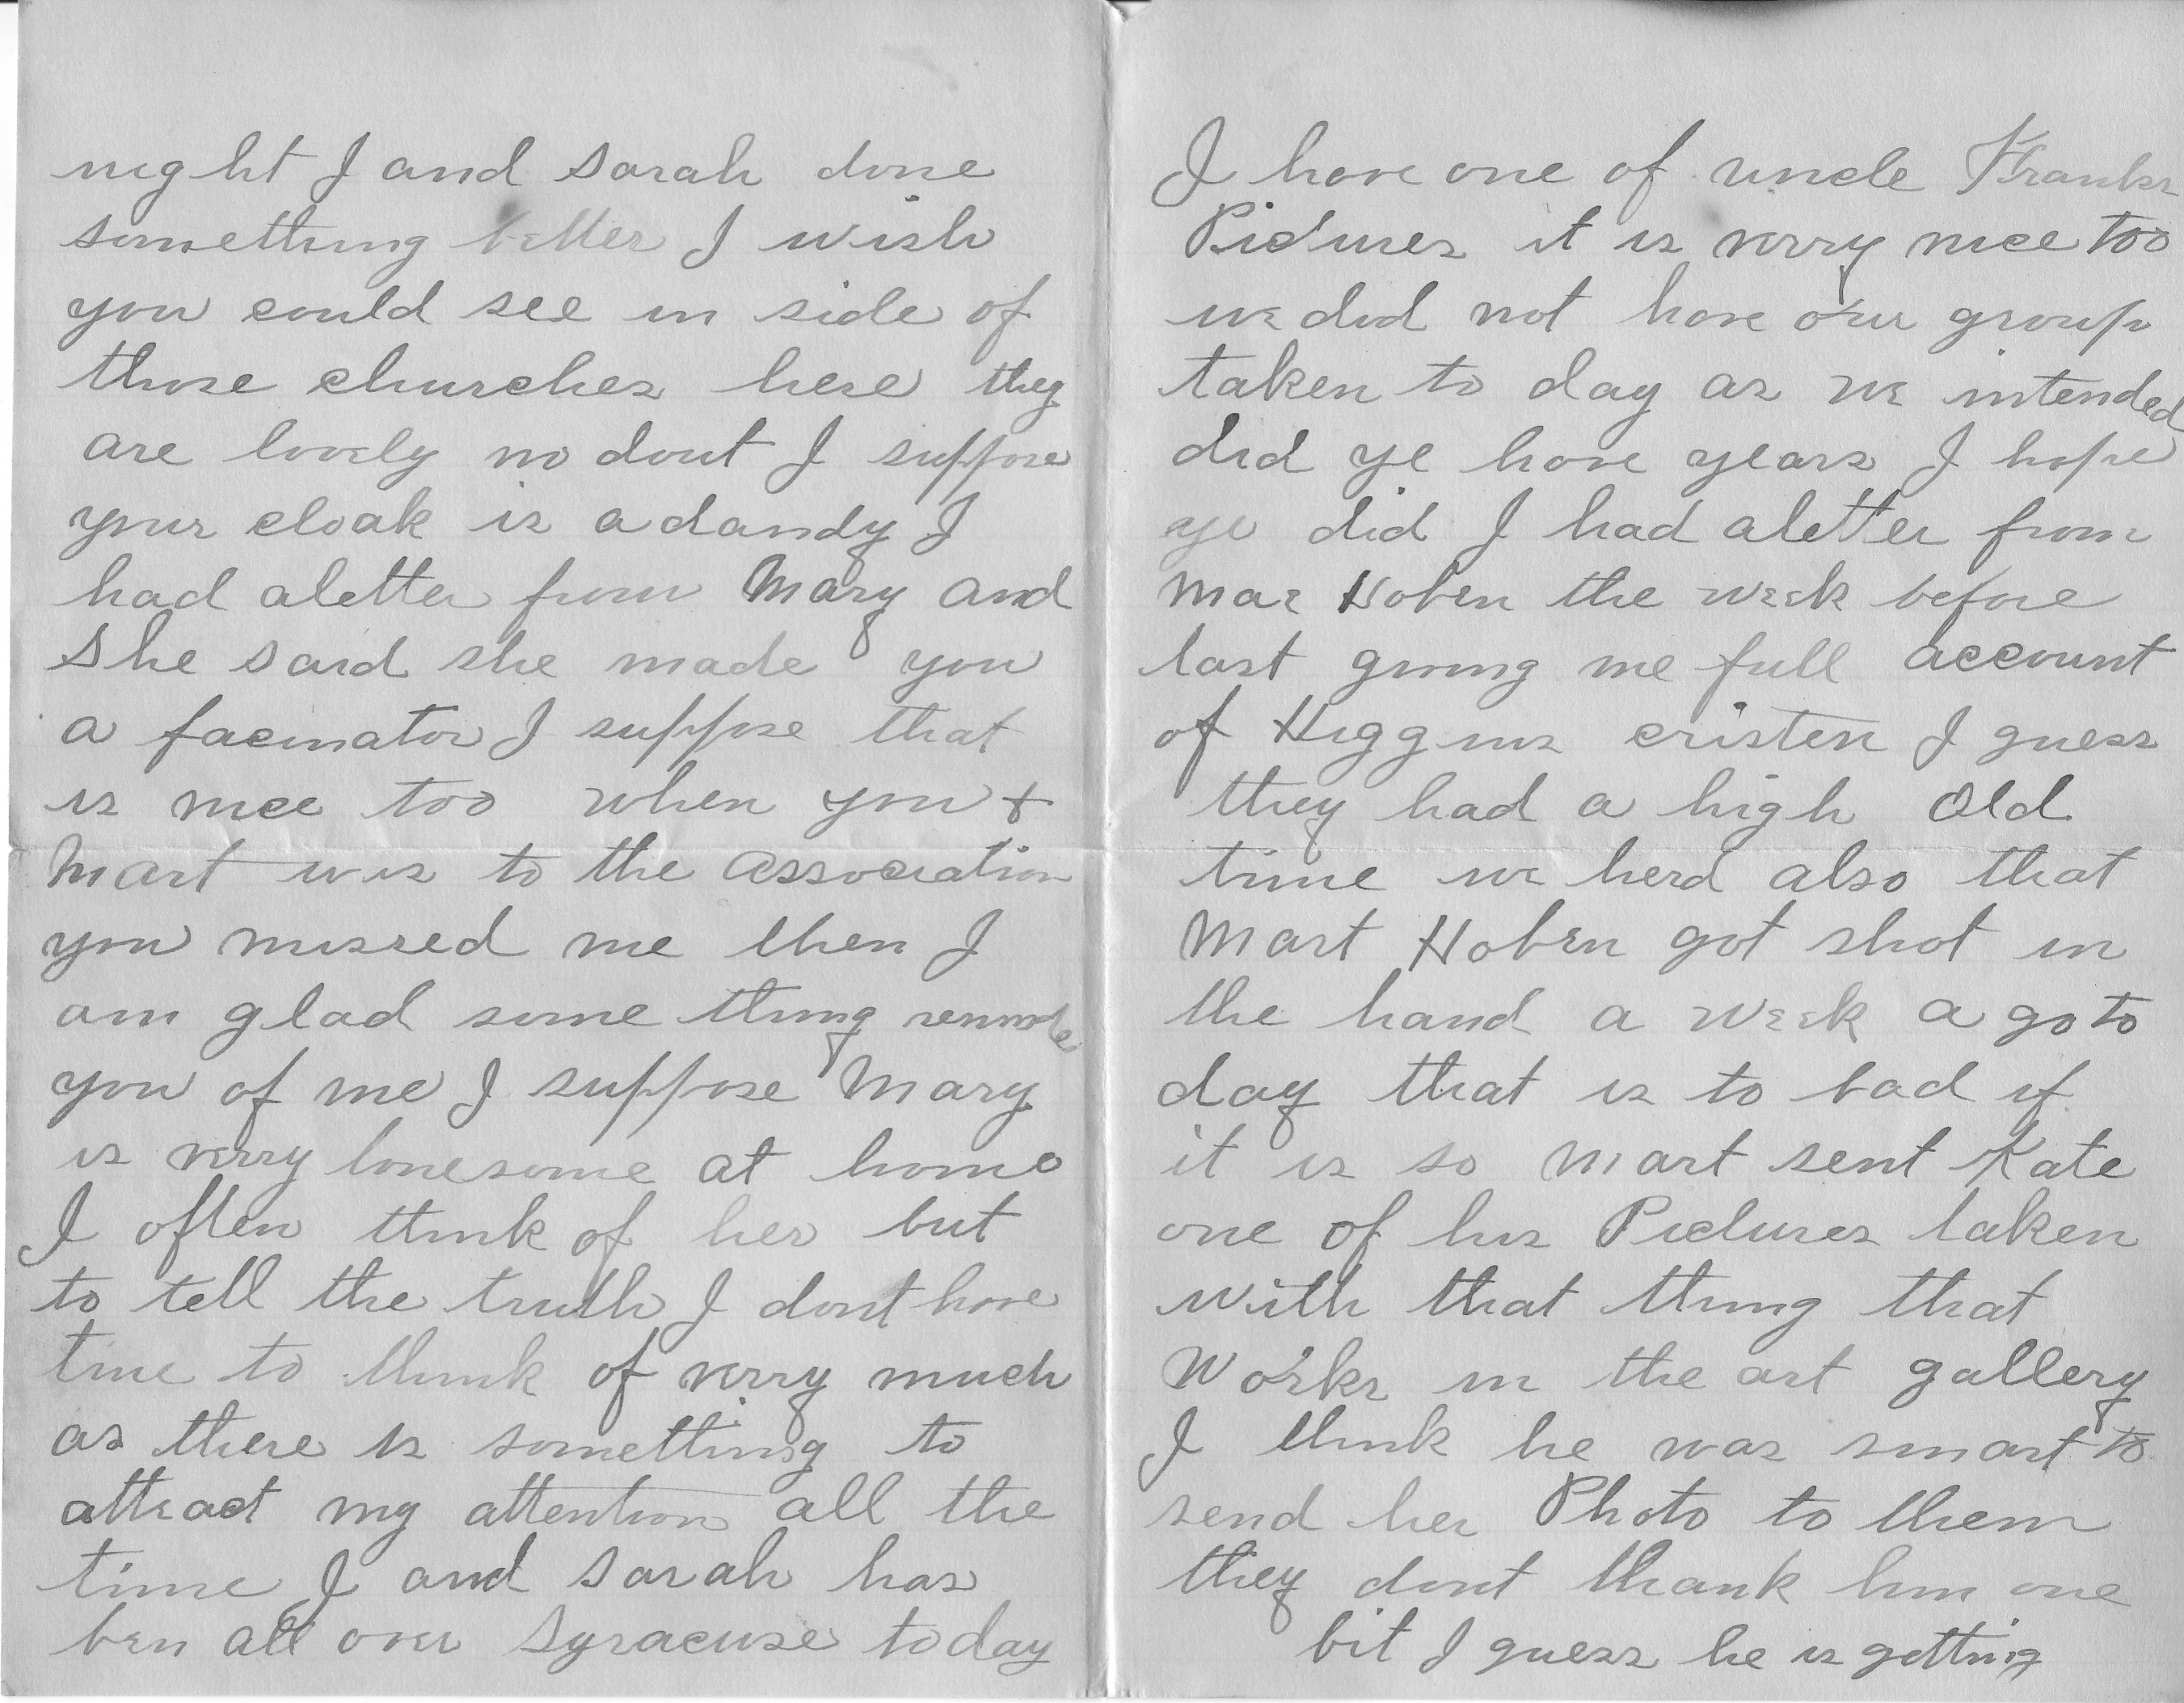 night I and Sarah done
something better I wish
you could see in side of
those churches here they
are lovely no dout I suppose
your cloak is a dandy I
had aletter from Mary and
She said she made you
a facinator I suppose that
is nice too when you +
Mart was to the Association
you missed me then I
am glad some thing reminde
you of me I suppose Mary
is verry lonesome at home
I often think of her but
to tell the truth I dont have
time to think of verry much
as there is something to
attract my attention all the
time I and Sarah has
ben all over Syracuse to day
I have one of uncle Franks
Pictures it is verry nice too
we did not have our group
taken to day as we intended
did ye have years I hope
ye did I had aletter from
Mae Hoben the week before
last giving me full account
of Higgins cristen I guess
they had a high Old
time we herd also that
Mart Hoben got shot in
the hand a week a go to
day that is to bad if
it is so Mart sent Kate
one of his Pictures taken
with that thing that
Works in the art gallery
I think he was smart to
send her Photo to them
they dont thank him one
bit I guess he is getting